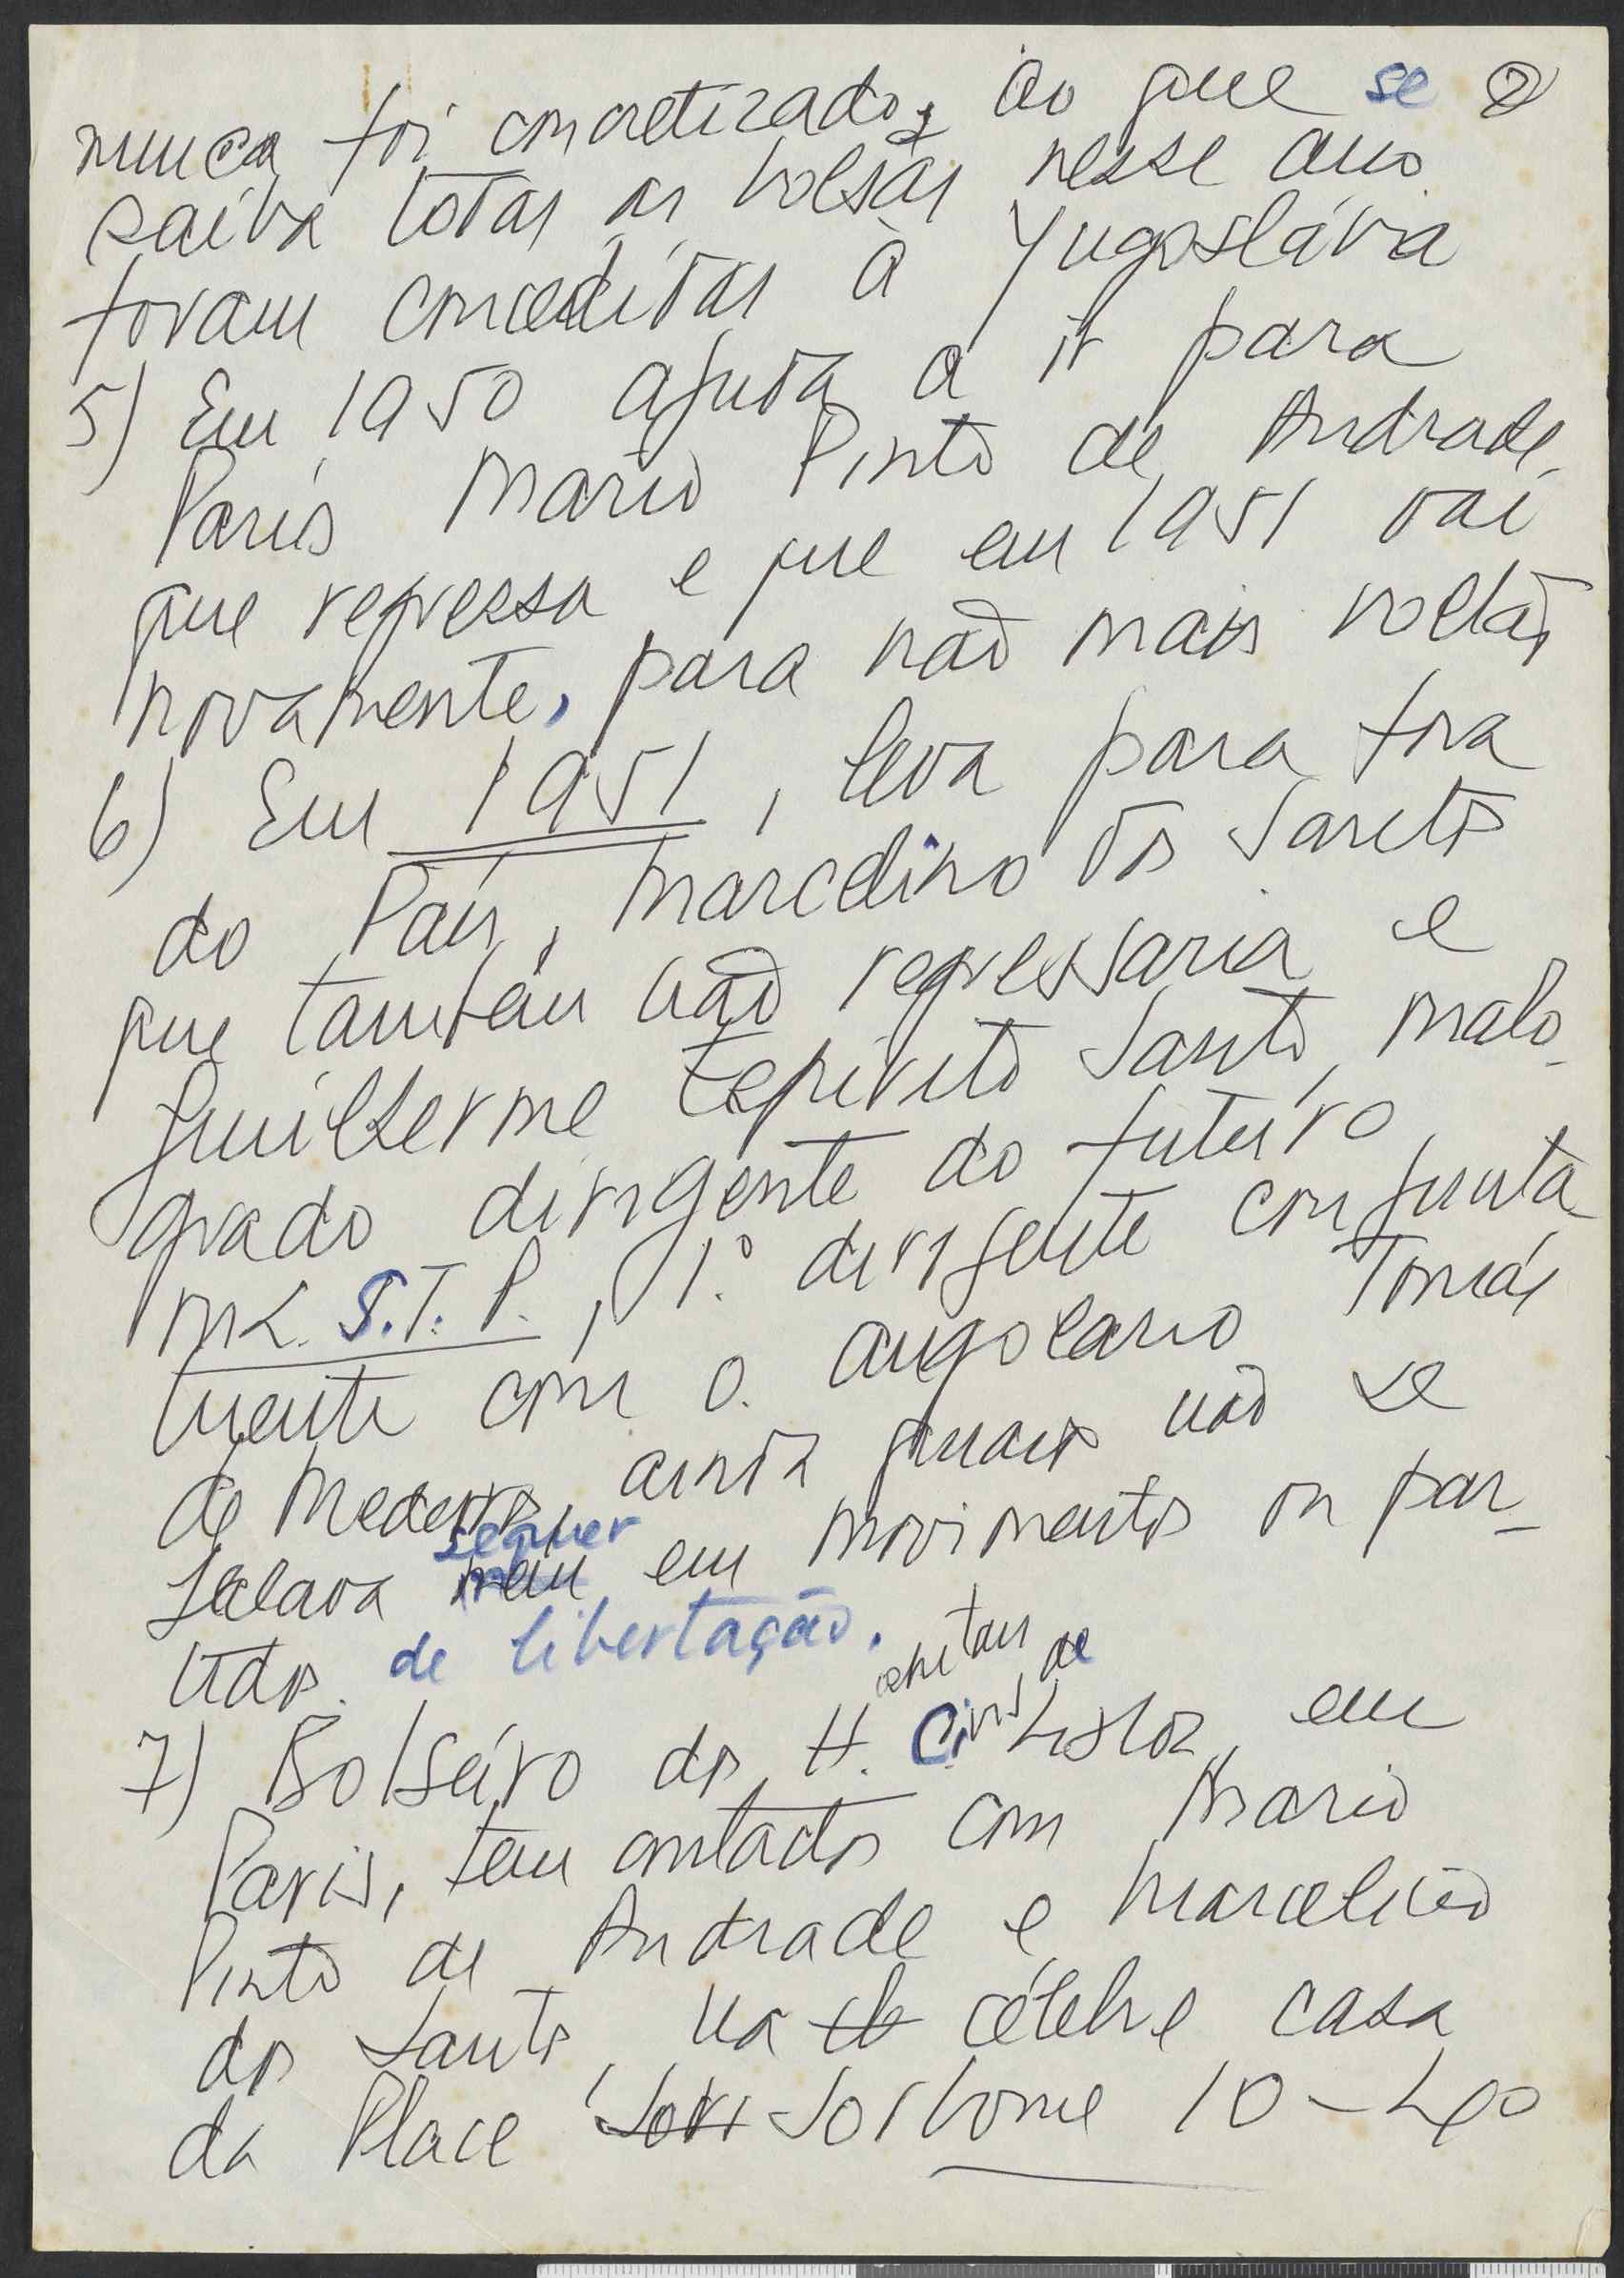 nunca foi concretizado, ao que se ②
saiba todas as bolsas nesse ano
foram concedidas à Yugoslávia
5) Em 1950 ajuda a ir para
Paris Mario Pinto de Andrade,
que regressa e que em 1951 vai
novamente, para não mais voltar,
6) Em 1951, leva para fora
do País, Marcelino dos Santos
que também não regressaria e
Guilherme Espirito Santo, malo-
grado dirigente do futuro
MLS.T.P., 1.º dirigente conjunta
mente com o angolano Tomás
de Medeiros, ainda quando não se
falava sequer em movimentos ou par-
tidos de libertação.
7) Bolseiro dos H. Civis de Lisboa em
ospitais
Paris, tem contactos com Mario
Pinto de Andrade e Marcelino
dos Santos, na célebre casa
da Place Sorbonne 10 - Leo